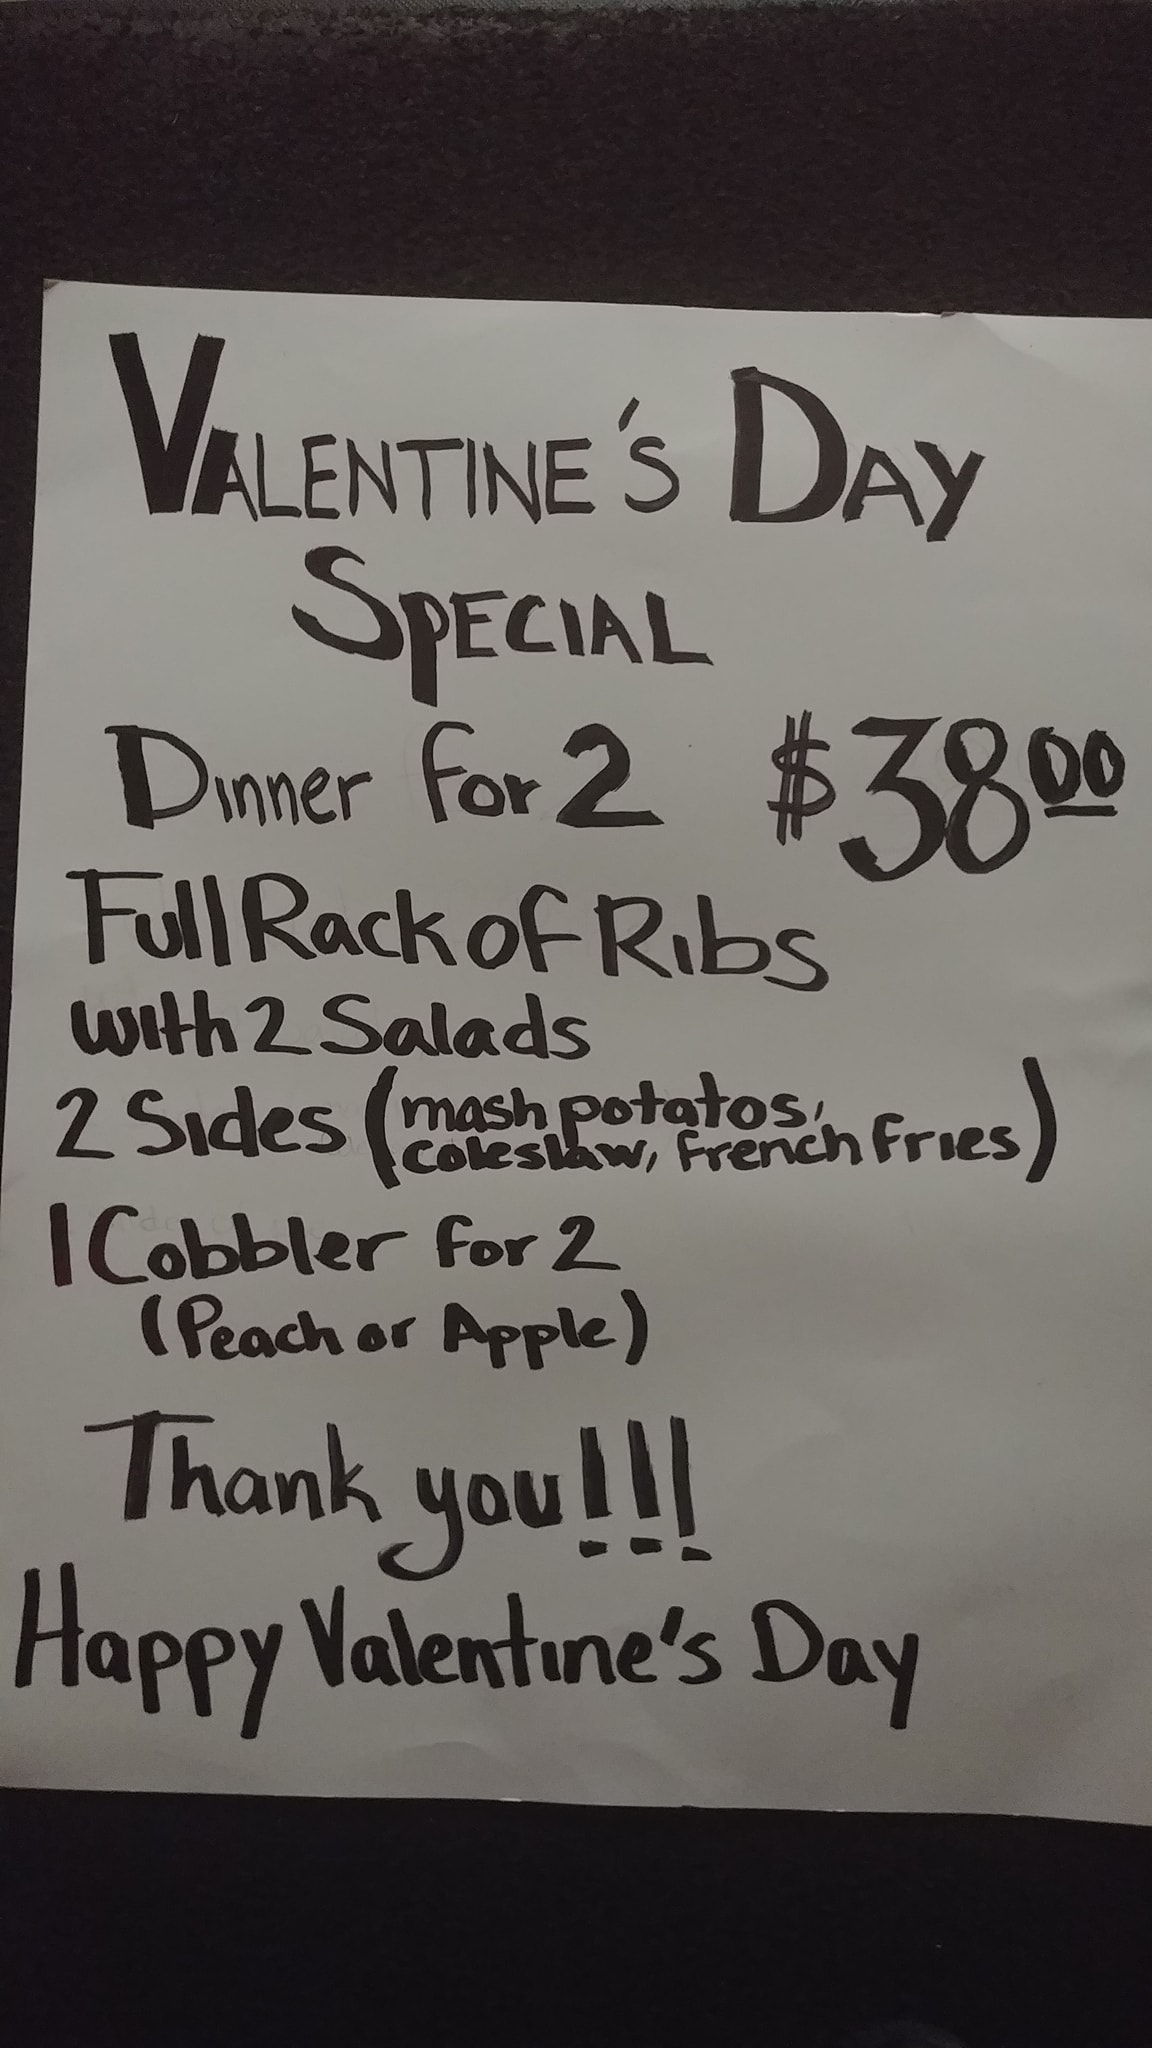 VALENTINE'S DAY
SPECIAL
Dinner for 2 $38.00
Full Rack of Ribs
with 2 Salads
2 Sides (mash potatos,
coleslaw, french fries)
1 Cobbler for 2
(Peach or Apple)
Thank you!!!
Happy Valentine's Day